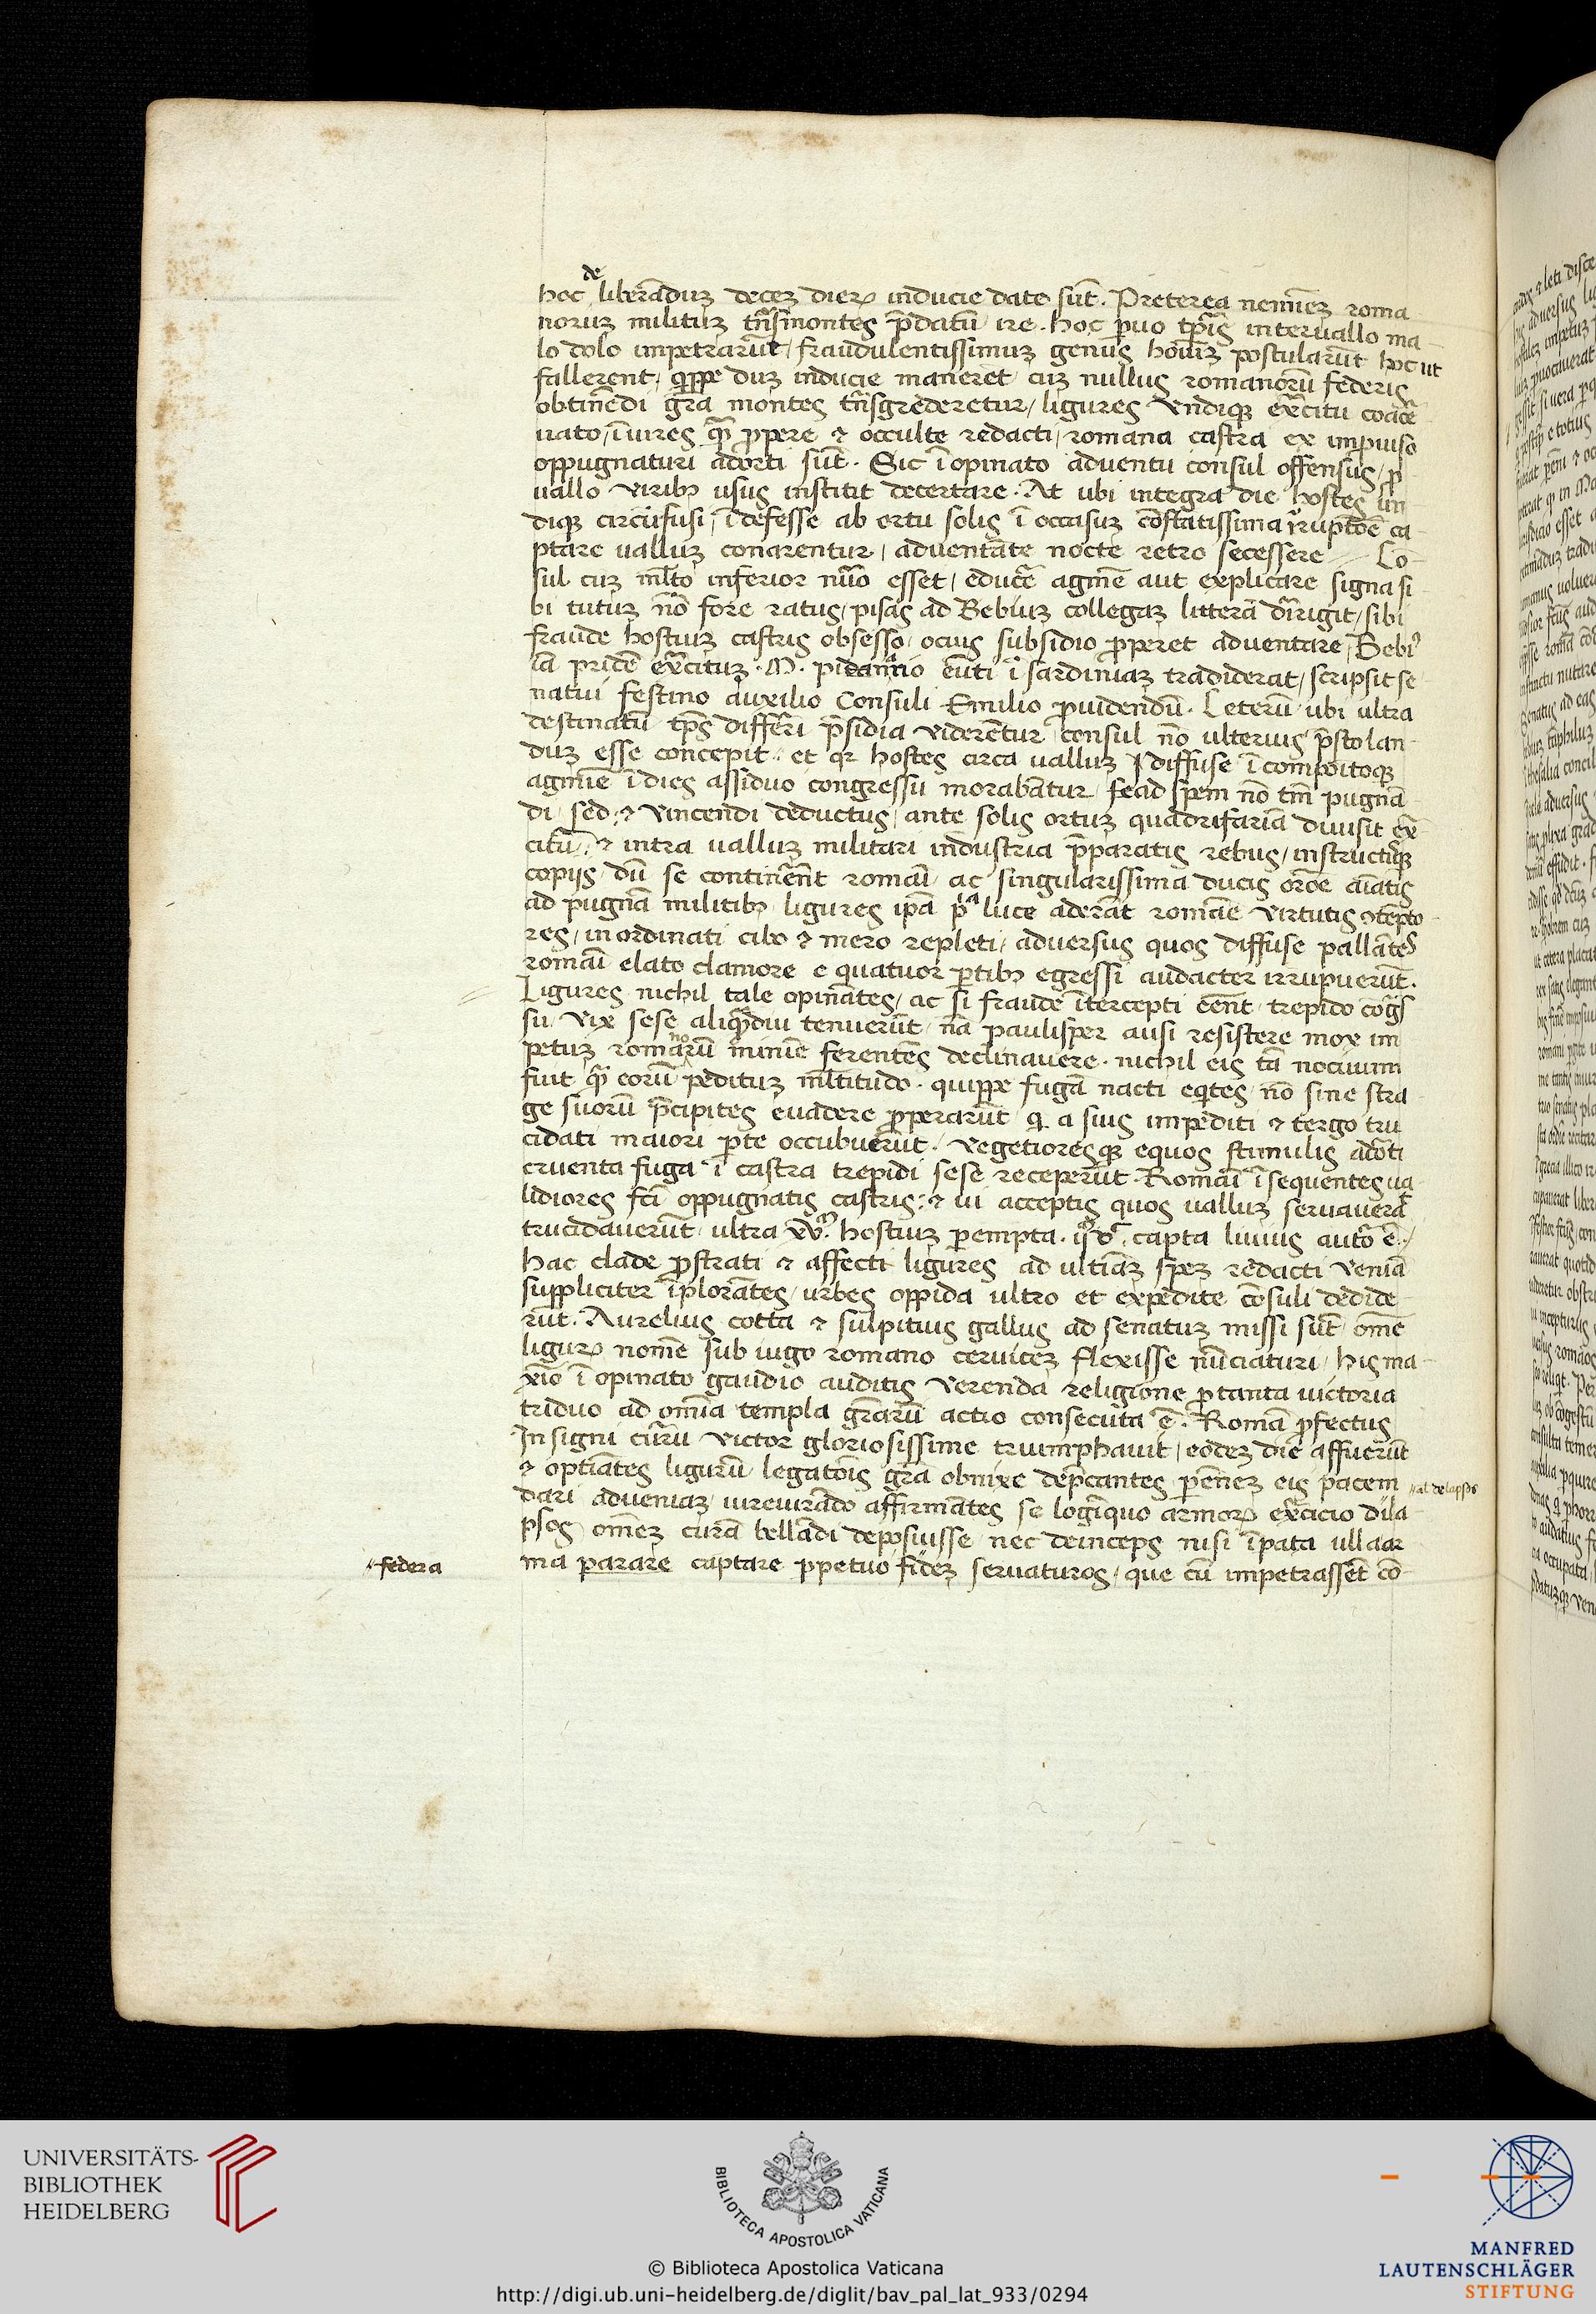 de
hoc liberāduz decez dierꝝ inducie date sūt. Preterea neminez roma-
noruz milituz trāsmontes p̄datū ire. hoc paruo tp̄is interuallo ma-
lo dolo impetrarūt / fraudulentissimuz genus homīz postularūt hoc ut
fallerent / quippe duz inducie manerēt cuz nullus romanorū federis
obtinēdi grā montes trāsgrederetur / ligures vndiqꝫ exercitu coacer-
uato / ī uires qꝫ propere & occulte redacti / romana castra ex improuiso
oppugnaturi adorti sūt. Sic ī opinato aduentu consul offensus / pro
uallo viribꝫ usus institit decertare. At ubi integra die hostes un-
diqꝫ circūfusi / īdefesse ab ortu solis ī occasuz cōstatissima irruptōe ca-
ptare ualluz conarentur / aduentāte nocte retro secessere Co-
sul cuz mlto inferior nuō esset / educere agmē aut explicare signa si
bi tutuz nō fore ratus / pisas ad Bebiuz collegaz litterā dirigit / sibi
fraude hostiuz castris obsesso / ocius subsidio properet aduentare / Bebi'
iā pridē exercituz M. eūti ī sardiniaz tradiderat / scripsit se
natui festino auxilio Consuli Emilio prouidendū. Ceterū ubi ultra
destinatū tp̄s differri p̄sidia viderētur consul nō ulterius p̄stolan-
duz esse concepit. et qr hostes circa ualluz diffuse ī compositoqꝫ
agmīe ī dies assiduo congressu morabātur / se ad spem nō tm̄ pugnā-
di / sed & vincendi deductus / ante solis ortuz quadrifariā diuisit exer-
citū / & intra ualluz militari industria p̄paratis rebus / instructisqꝫ
copijs / dū se continerēt romāi / ac singularissima ducis orōe aīatis
ad pugnā militibꝫ ligures ipā pa luce aderāt romāe virtutis ꝯtēpto-
res / inordinati cibo & mero repleti / aduersus quos diffuse pallātes
romāi elato clamore e quatuor ꝑtibꝫ egressi audacter irrupuerūt.
Ligures nichil tale opināntes / ac si fraude ītercepti eēnt trepido cōgres-
su vix sese aliqdiu tenuerūt / nā paulisper ausi resistere mox im
petuz romanorū minime ferentes declinauere. nichil eis tā nociuum
fuit qꝫ eorū peditum mltitudo. quippe fugā nacti eqites nō sine stra
ge suorū p̄cipites euadere properarūt / q a suis impediti & tergo tru
cidati maiori ꝑte occubuerūt. vegetioresqꝫ equos stimulis adacti
cruenta fuga ī castra trepidi sese receperūt. Romāi īsequentes ua-
lidiores fci oppugnatis castris & ui acceptis quos ualluz seruauerāt
trucidauerūt ultra hostiuz ꝑempta. capta liuius autor ē.
hac clade prostrati & affecti ligures ad ultimāz spez redacti veniā
suppliciter īplorātes / urbes oppida ultro et expedite cōsuli dedide-
rūt. Aurelius cotta & sulpitius gallus ad senatuz missi sūt omē
ligurꝝ nomē sub iugo romano ceruicez flexisse nūciaturi / his ma-
xīo ī opinato gaudio auditis verenda religione pro tanta uictoria
triduo ad omnia templa grārū actio consecuta ē. Romā profectus
Insigni curru victor gloriosissime triumphauit / eodez die affuerūt
& optīates ligurū legatōis grā obnixe dep̄cantes ꝑēnez eis pacem
dari adueniaz / iureiurādo affirmātes se loginquo armorꝝ exercicio dila-
psos omēz curā bellādi deposuisse nec deinceps nisi īpata ulla ar
ma parare captare ꝑpetuo fidez seruaturos / que cū impetrassēt cō-
al delapsos
federa
UNIVERSITÄTS-
BIBLIOTHEK
HEIDELBERG
BIBLIOTECA APOSTOLICA VATICANA
© Biblioteca Apostolica Vaticana
http://digi.ub.uni-heidelberg.de/diglit/bav_pal_lat_933/0294
MANFRED
LAUTENSCHLÄGER
STIFTUNG